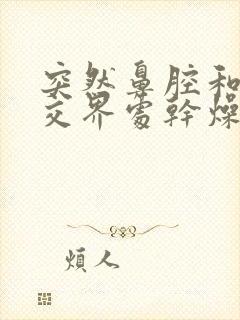 突然鼻腔和
交界處幹燥
煩人